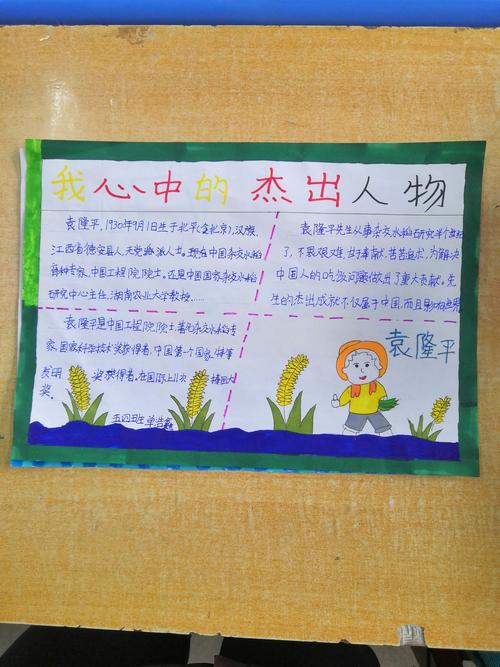 我心中的杰出人物
袁隆平,1930年9月1日生于北平(今北京),汉族,
江西省德安县人,无党派人士。现在中国杂交水稻
育种专家,中国工程院院士。还是中国国家杂交水稻
研究中心主任,湖南农业大学教授......
袁隆平先生从事杂交水稻研究半个世纪
了,不畏艰难,甘于奉献,苦苦追求,为解决
中国人的吃饭问题做出了重大贡献。先
生的杰出成就不仅属于中国,而且影响世界
袁隆平是中国工程院院士,著名杂交水稻专
家,国家科学技术奖获得者,中国第一个国家特等
发明 奖获得者。在国际上11次 获国大
奖。
五四班
袁隆平